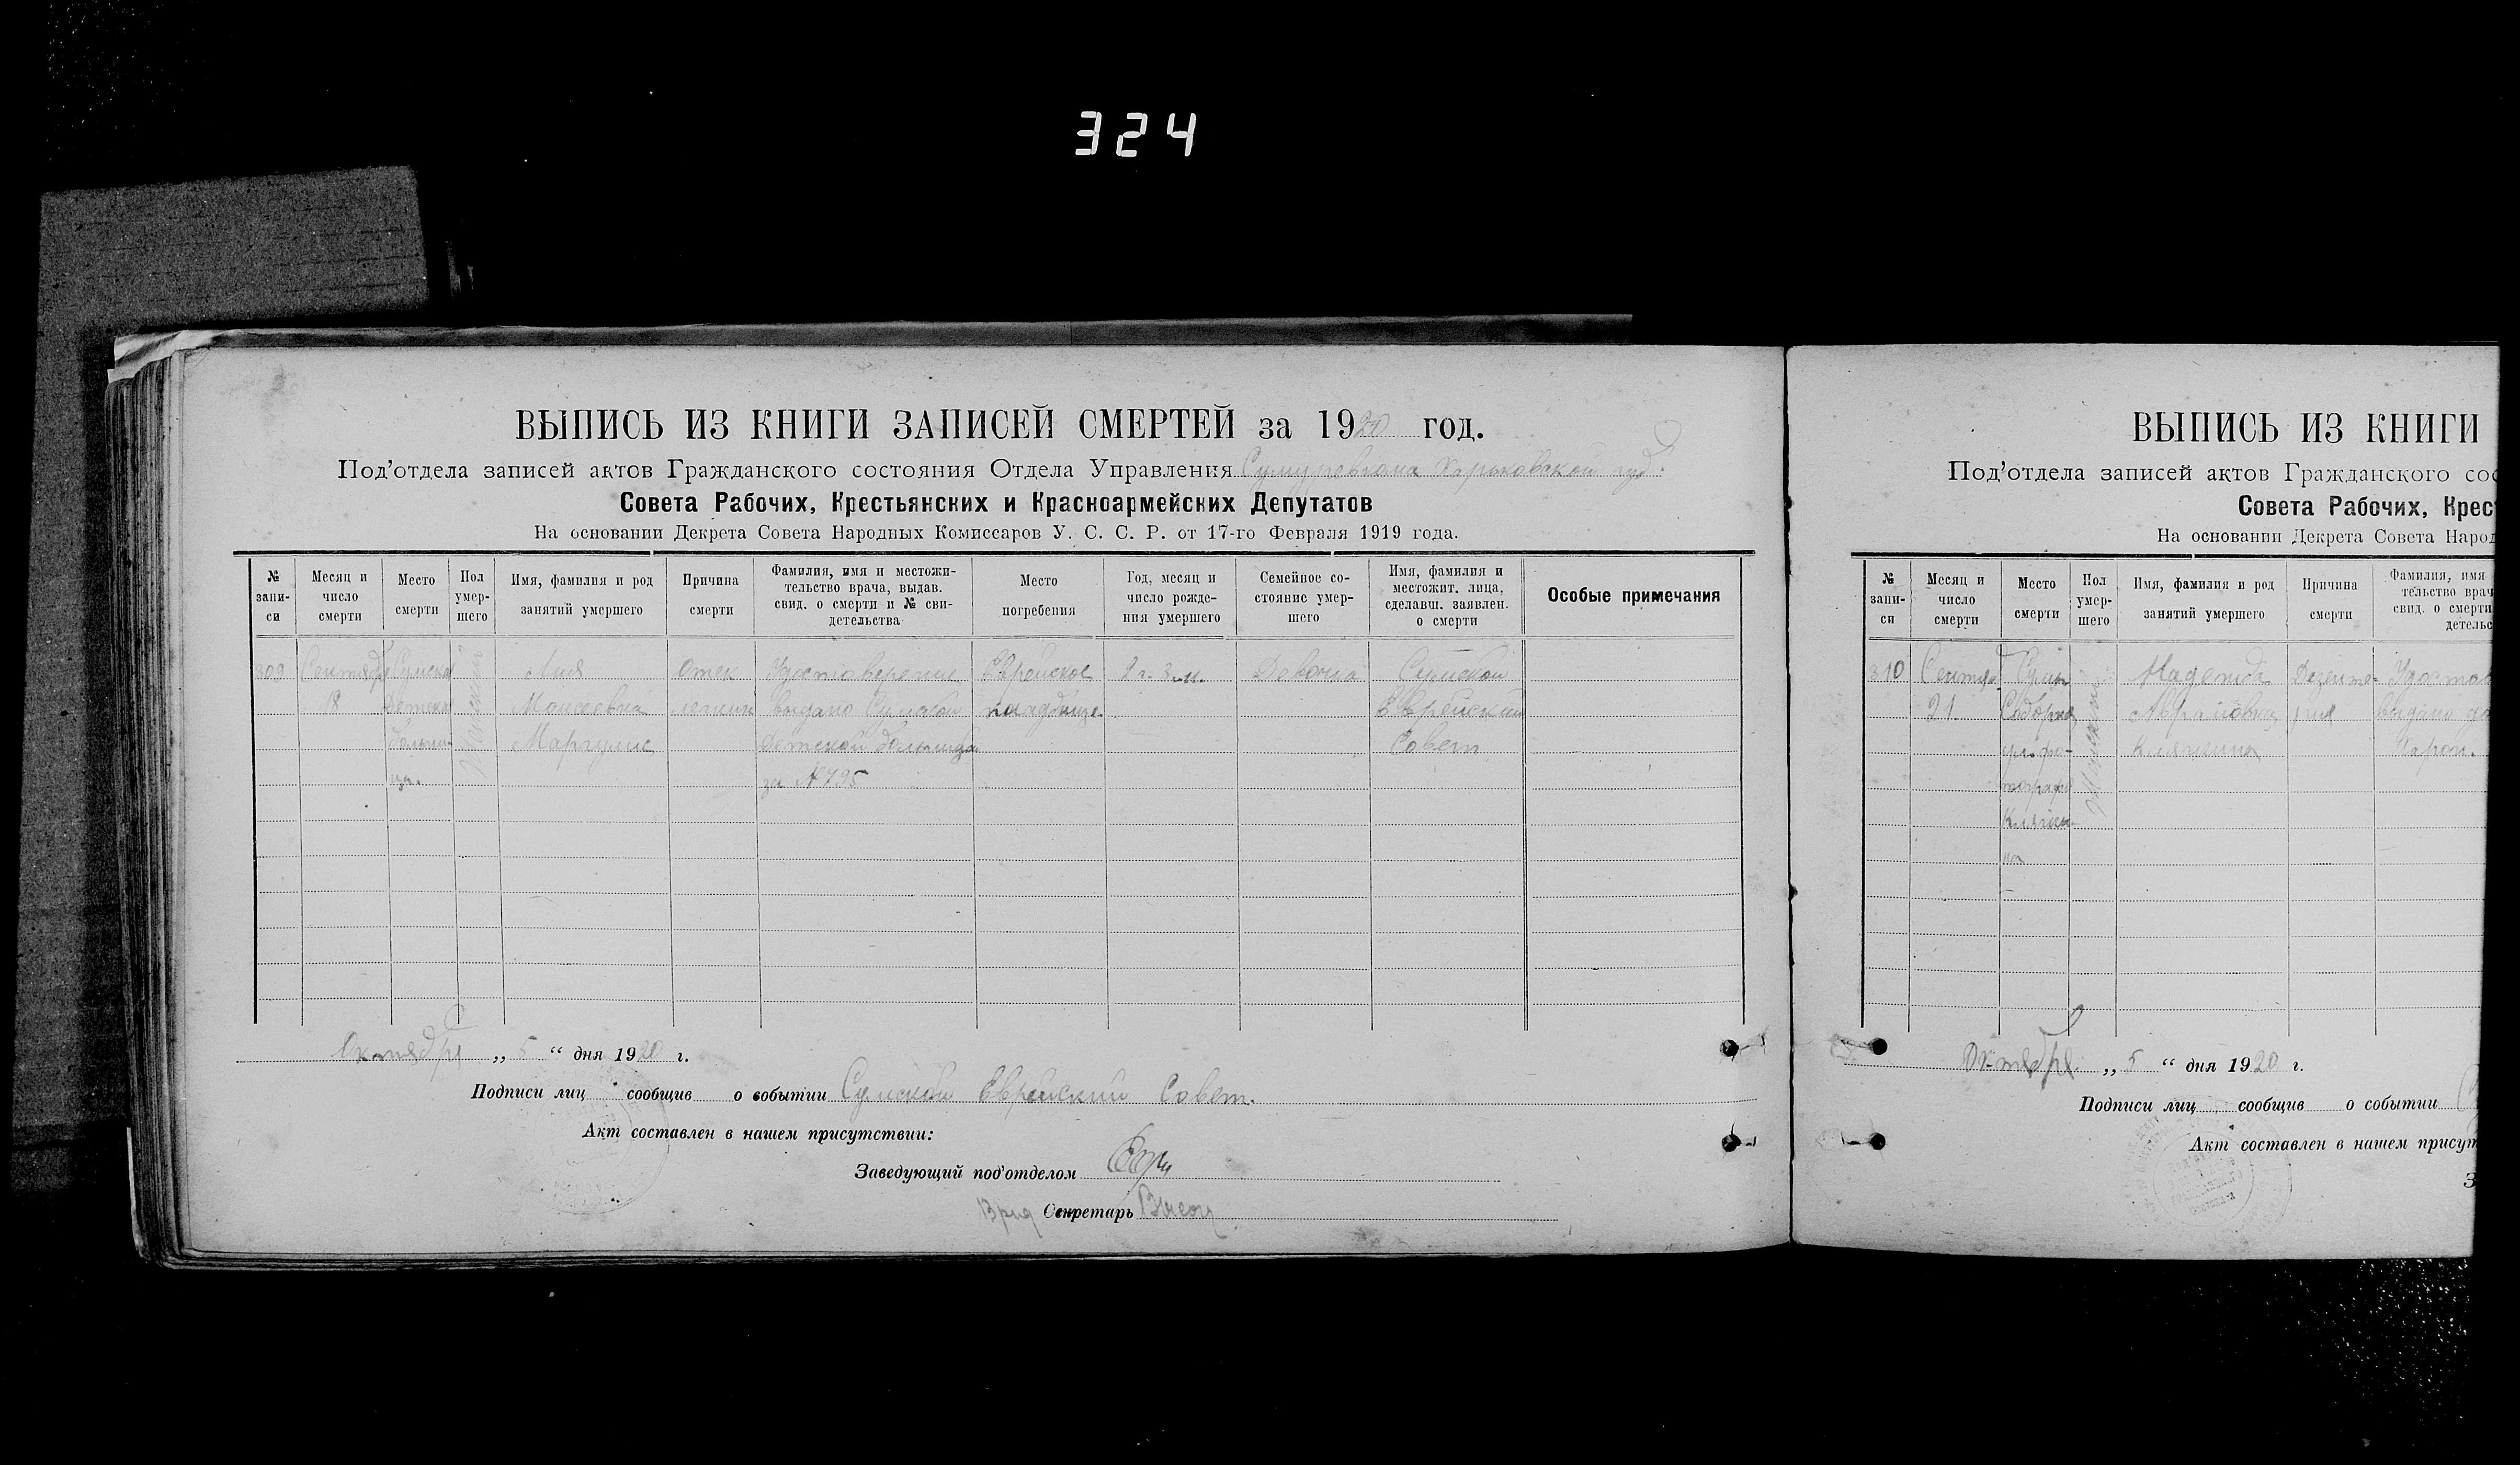 324
ВЫПИСЬ ИЗ КНИГИ ЗАПИСЕЙ СМЕРТЕЙ за 1920 год.
Под'отдела записей актов Гражданского состояния Отдела Управления Харьковской губ.
Совета Рабочих, Крестьянских и Красноармейских Депутатов
На основании Декрета Совета Народных Комиссаров У. С. С. Р. от 17-го Февраля 1919 года.
№ запи-си
Месяц и число смерти
Место смерти
Пол умер-шего
Имя, фамилия и род занятий умершего
Причина смерти
Фамилия, имя и местожи-тельство врача, выдав. свид. о смерти и № сви-детельства
Место погребения
Год, месяц и число рожде-ния умершего
Семейное со-стояние умер-шего
Имя, фамилия и местожит. лица, сделавш. заявлен. о смерти
Особые примечания
309 Сентябр Сумска Женский Лия Отек Удостоверение Еврейское 2 г. 3 м. Девочка Сумской
18 Детска Моисеевна легких выдано Сумской кладбище Еврейский
больни- Маргулис детской больница Совет
ца. за №795
Октября „ 5 “ дня 1920 г.
Подписи лиц сообщив о событии Сумской Еврейский Совет.
Акт составлен в нашем присутствии:
Заведующий под'отделом
Врид Секретарь
ВЫПИСЬ ИЗ КНИГИ
Под'отдела записей актов Гражданского сос
Совета Рабочих, Крес
На основании Декрета Совета Народ
№ запи-си
Месяц и число смерти
Место смерти
Пол умер-шего
Имя, фамилия и род занятий умершего
Причина смерти
Фамилия, имя
тельство врач
свид. о смерти
детельс
310 Сентяб. Сумы Женский Надежда Дизенте- Удостов
21 Соборная Абрамовна рия выдано
ул. фо- Клячкина Нароп.
тограф
Клячки-
на
Октября „ 5 “ дня 1920 г.
Подписи лиц сообщив о событии
Акт составлен в нашем присут
З